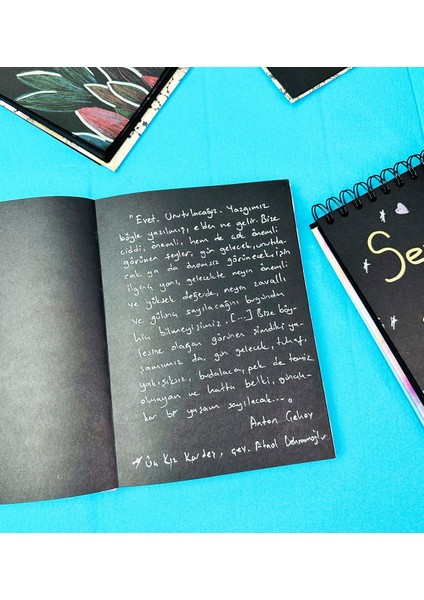 "Evet. Unutulacağız. Yazgımız
böyle yazılmış, elden ne gelir. Bize
ciddi, önemli, hem de çok önemli
görünen şeyler, gün gelecek, unutula-
cak ya da önemsiz görünecek. İşin
ilginç yanı, gelecekte neyin önemli
ve yüksek değerde, neyin zavallı
ve gülünç sayılacağını bugünden
hiç bilmeyişimiz. [...] Bize böy-
lesine olağan görünen şimdiki ya-
şamımız da, gün gelecek, tuhaf,
yakışıksız, budalaca, pek de temiz
olmayan ve hatta belki, günah-
kar bir yaşam sayılacak..."
Anton Çehov
Üç Kız Kardeş, çev.
Se